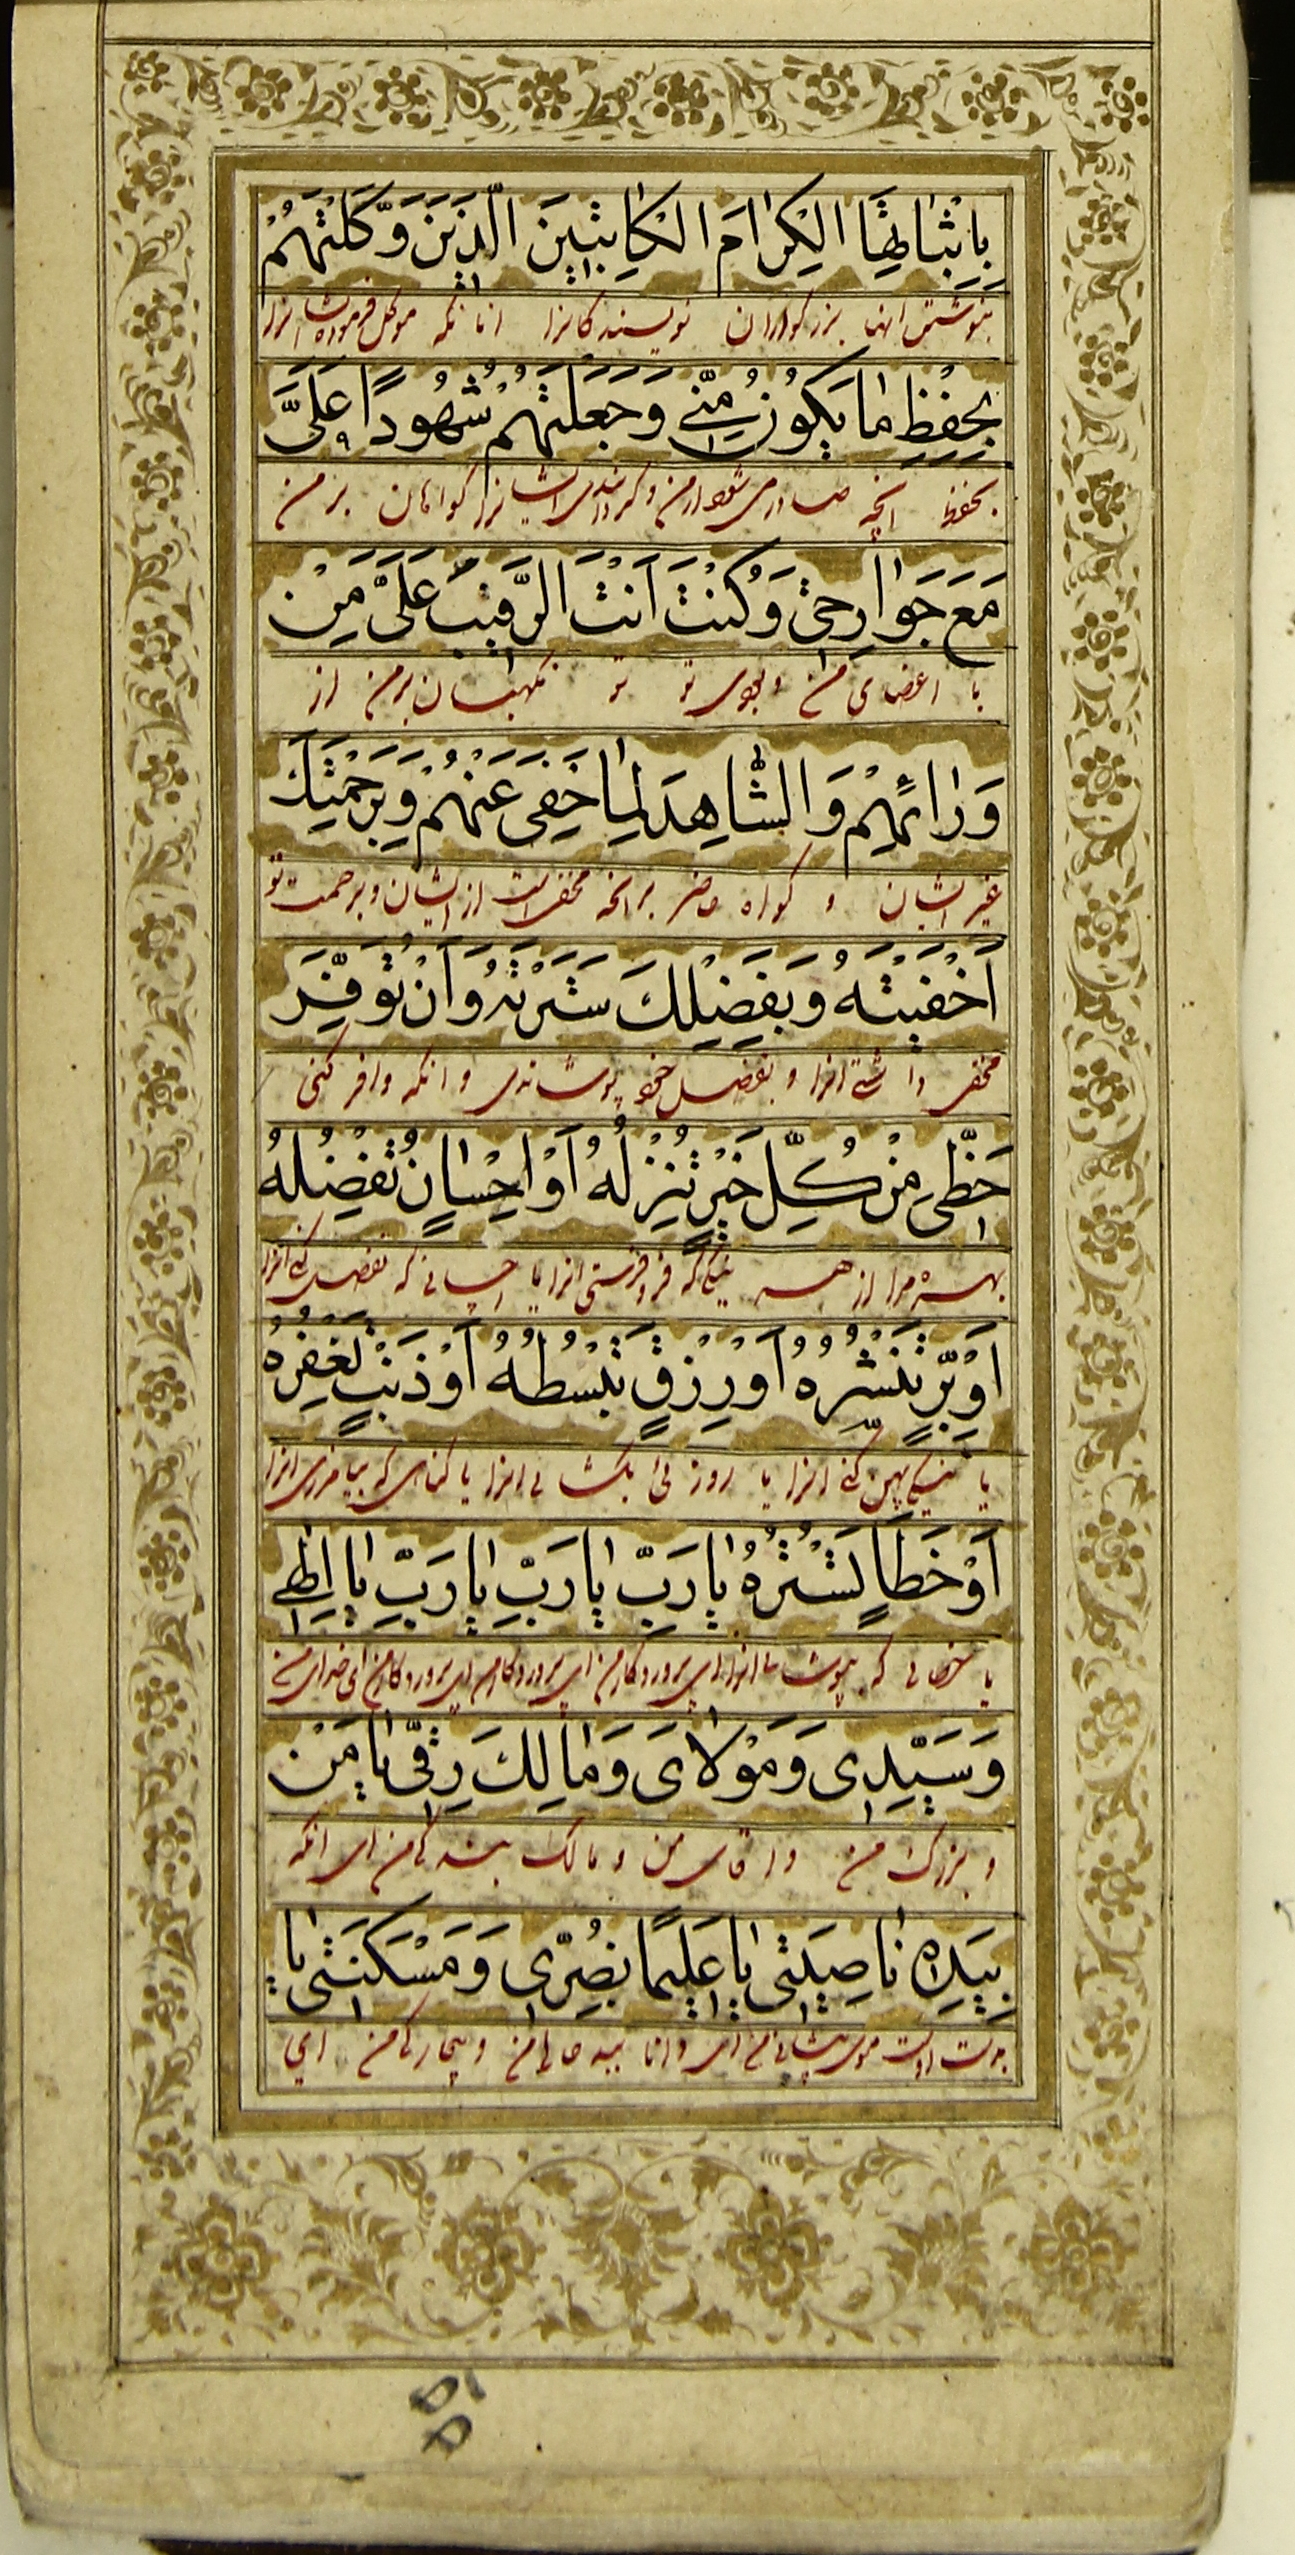 بِاِثْباتِهَا الْكِرامَ الْكاتِبينَ الَّذينَ وَكَّلْتَهُمْ
بنوشتن انها بزرکواران نویسندکانرا انانکه موکل فرموده ایشانرا
بِحِفْظِ ما يَكُونُ مِنّي وَجَعَلْتَهُمْ شُهُودًا عَلَيَّ
بحفظ انچه صادر می شود از من و کردانیدی ایشانرا کواهان بر من
مَعَ جَوارِحي وَكُنْتَ اَنْتَ الرَّقيبَ عَلَيَّ مِنْ
با اعضای من و بودی تو تو نکهبان بر من از
وَرائِهِمْ وَالشّاهِدَ لِما خَفِيَ عَنْهُمْ وَبِرَحْمَتِكَ
غیر ایشان و کواه حاضر برانچه مخفی است از ایشان و برحمت تو
اَخْفَيْتَهُ وَبِفَضْلِكَ سَتَرْتَهُ وَاَنْ تُوَفِّرَ
مخفی داشتی انرا و بفضل خود پوشاندی و انکه وافر کنی
حَظّي مِنْ كُلِّ خَيْرٍ تُنْزِلُهُ اَوْ اِحْسانٍ تُفْضِلُهُ
بهره مرا از هر نیکی که فرو فرستی انرا یا احسانی که تفضل کنی انرا
اَوْ بِرٍّ تَنْشُرُهُ اَوْ رِزْقٍ تَبْسُطُهُ اَوْ ذَنْبٍ تَغْفِرُهُ
یا نیکی پهن کنی انرا یا روزئی بکشائی انرا یا کناهی که بیامرزی انرا
اَوْ خَطَاٍ تَسْتُرُهُ يا رَبِّ يا رَبِّ يا رَبِّ يا اِلهي
یا خطائی که بپوشانی انرا ای پروردکار من ای پروردکار من ای پروردکار من ای خدای من
وَسَيِّدي وَمَوْلايَ وَمالِكَ رِقّي يا مَنْ
و بزرک من و اقای من و مالک بندکی من ای انکه
بِيَدِهِ ناصِيَتي يا عَليمًا بِضُرّي وَمَسْكَنَتي يا
بدست اوست موی پیشانی من ای دانا ببد حالی من و بیچارکی من ای